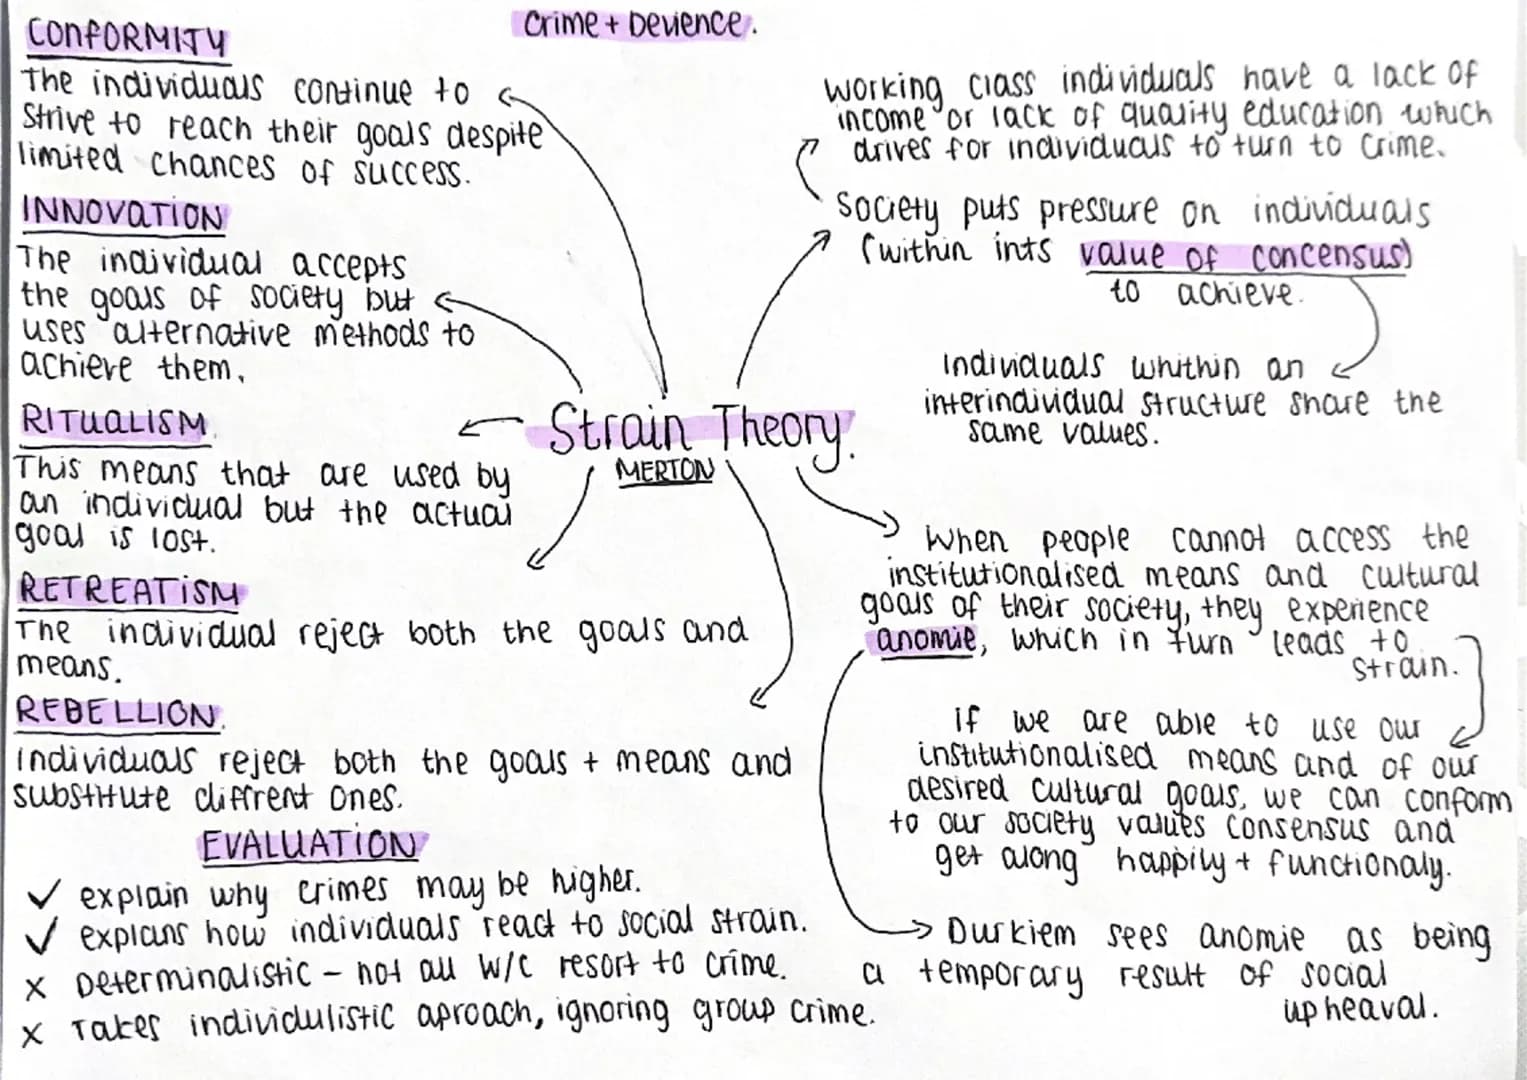 Crime + Devience.
CONFORMITY
The individuals continue to
strive to reach their goals despite
limited chances of success.
INNOVATION
The individual accepts
the goals of society but
uses alternative methods to
achieve them.
RITUALISM.
This means that are used by
an individual but the actual
goal is lost.
RETREATISM
The individual reject both the goals and
means.
REBELLION.
Individuals reject both the goals + means and
substitute diffrent ones.
EVALUATION
✓ explain why crimes may be higher.
✓ explans how individuals react to social strain.
x Determinalistic - not all W/C resort to crime.
x Takes individulistic aproach, ignoring group crime.
Strain Theory.
MERTON
Working class individuals have a lack of
income or lack of quality education which
drives for individuals to turn to crime.
Society puts pressure on individuals
(within ints value of concensus)
to achieve.
Individuals whithin an
interindividual structure share the
same values.
When people cannot access the
institutionalised means and cultural
goals of their society, they experience
anomie, which in turn leads to
strain.
If we are able to use our
institutionalised means and of our
desired cultural goals, we can conform
to our society values consensus and
get along happily + functionaly.
Durkiem sees anomie as being
a temporary result of social
upheaval.